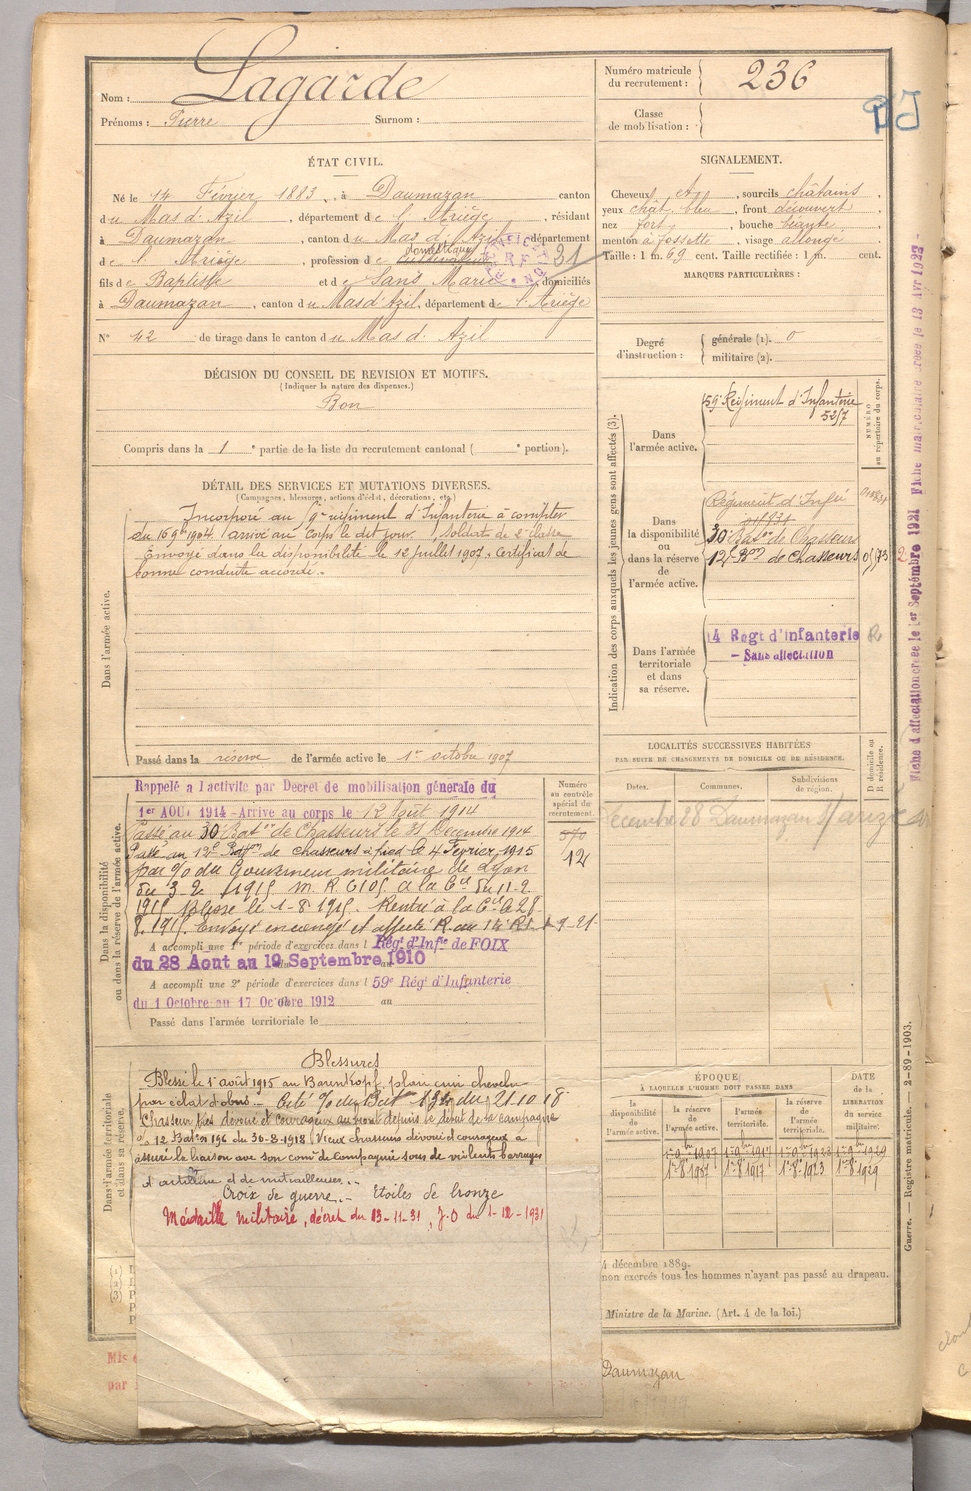 Nom : Lagarde
Prénoms : Pierre Surnom :
Numéro matricule du recrutement : 236
Classe de mobilisation :
ÉTAT CIVIL.
Né le 14 Février 1883, à Daumazan canton
du Mas d'Azil, département de l'Ariège, résidant
à Daumazan, canton du Mas d'Azil, département
de l'Ariège, profession de cultivateur domestique
31
fils de Baptiste et de Sans Marie domiciliés
à Daumazan, canton du Mas d'Azil, département de l'Ariège
N° 42 de tirage dans le canton du Mas d'Azil
SIGNALEMENT.
Cheveux, sourcils châtains,
yeux chât. bleu, front découvert
nez fort, bouche béante,
menton à fossette, visage allongé
Taille : 1 m. 69 cent. Taille rectifiée : 1 m. cent.
MARQUES PARTICULIÈRES :
Degré d'instruction : générale (1). 0
militaire (2).
DÉCISION DU CONSEIL DE REVISION ET MOTIFS.
(Indiquer la nature des dispenses.)
Bon
Compris dans la 1 e partie de la liste du recrutement cantonal ( e portion).
DÉTAIL DES SERVICES ET MUTATIONS DIVERSES.
(Campagnes, blessures, actions d'éclat, décorations, etc.)
Dans l'armée active.
Incorporé au 9e régiment d'Infanterie à compter
du 16 9bre 1904. arrivé au Corps le dit jour. Soldat de 2e classe
Envoyé dans la disponibilité le 12 juillet 1907. Certificat de
bonne conduite accordé.
Passé dans la réserve de l'armée active le 1er octobre 1907
Indication des corps auxquels les jeunes gens sont affectés (3).
NUMÉRO au répertoire du corps.
Dans l'armée active.
59e Régiment d'Infanterie
5217
Dans la disponibilité ou dans la réserve de l'armée active.
Régiment d'Infie
30e Baton de Chasseurs
12e Bon de Chasseurs
Dans l'armée territoriale et dans sa réserve.
14 Régt d'Infanterie
- Sans affectation
LOCALITÉS SUCCESSIVES HABITÉES
PAR SUITE DE CHANGEMENTS DE DOMICILE OU DE RÉSIDENCE.
Dates. Communes. Subdivisions de région. D domicile ou R résidence.
Daumazan
Dans la disponibilité ou dans la réserve de l'armée active.
Numéro au contrôle spécial du recrutement.
Rappelé à l'activité par Décret de mobilisation générale du
1er AOUT 1914 - Arrivé au corps le 12 Août 1914
Passé au 30 Baton de Chasseurs le 21 Décembre 1914
Passé au 12e Batton de chasseurs à pied le 4 Février 1915
12
par %o du Gouverneur militaire de Lyon
du 3-2 1915 M.R. 6105 à la Cie du 11-2.
1915 Blessé le 1-8-1915. Rentré à la Cie le 28
8.1915. Envoyé en congé et affecté R au 14 RI
A accompli une 1re période d'exercices dans l Régt d'Infie de FOIX
du 28 Aout au 19 Septembre 1910
A accompli une 2e période d'exercices dans l 59e Régt d'Infanterie
du 1 Octobre au 17 Octobre 1912 au
Passé dans l'armée territoriale le
Dans l'armée territoriale et dans sa réserve.
Blessures
Blessé le 1er août 1915 au Barenkopf, plaie cuir chevelu
par éclat d'obus. - Cité %o du Bat 134 du 21.10.18
Chasseur très dévoué et courageux au front depuis le début de la campagne
12 Baton 196 du 30-8-1918 (Vieux chasseur dévoué et courageux a
assuré la liaison avec son comdt de Compagnie sous de violents barrages
d'artillerie et de mitrailleuses.
Croix de guerre. - Etoiles de bronze
Médaille Militaire, décret du 13-11-31, J.O du 1-12-1931
ÉPOQUE
À LAQUELLE L'HOMME DOIT PASSER DANS
la disponibilité de l'armée active. la réserve de l'armée active. l'armée territoriale. la réserve de l'armée territoriale. DATE de la LIBÉRATION du service militaire.
1-8-1907 1-8-1917 1-8-1923 1-8-1929
4 décembre 1889.
non exercés tous les hommes n'ayant pas passé au drapeau.
Ministre de la Marine. (Art. 4 de la loi.)
Daumazan
Mis
par
Guerre. — Registre matricule. — 2-89-1903.
Fiche d'affectation créée le 1er Septembre 1921
Fiche matriculaire créée le 13 Avr 1923 -